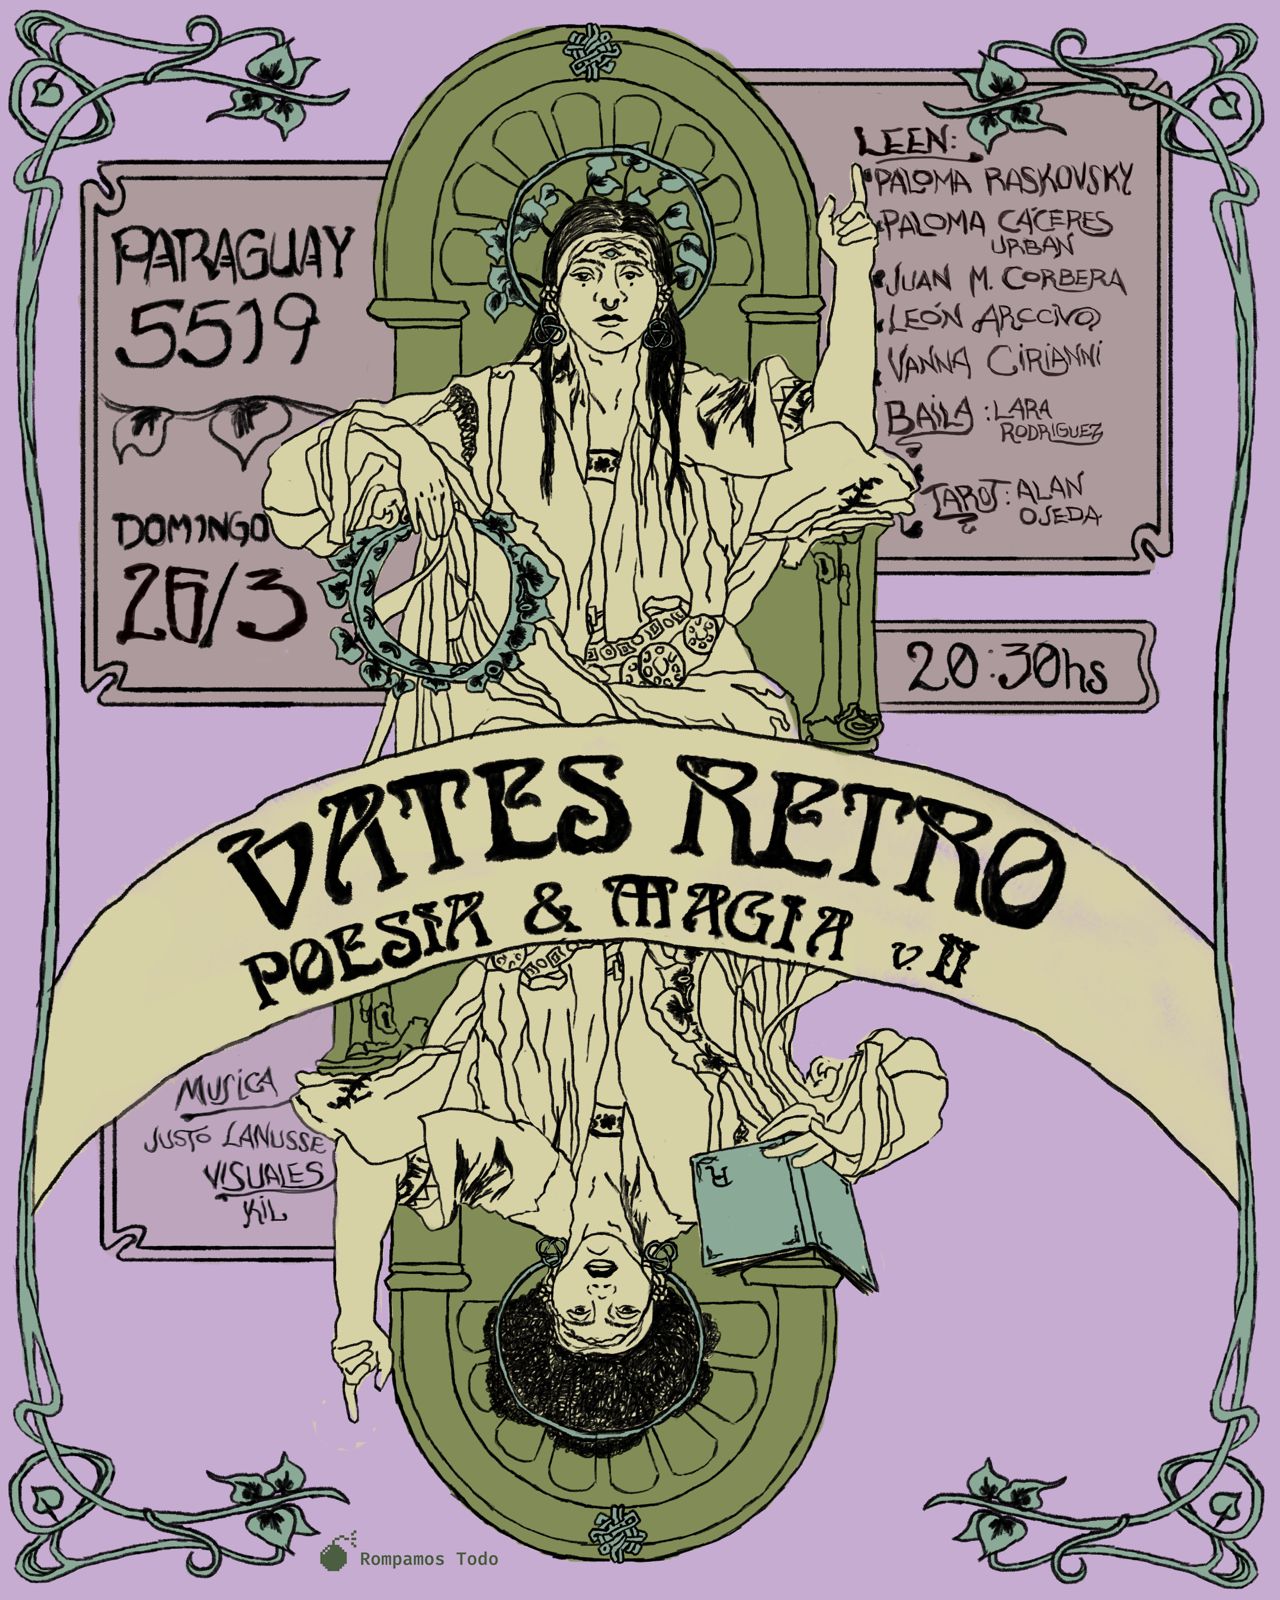 PARAGUAY
5519
DOMINGO
26/3
LEEN:
PALOMA RASKOVSKY
PALOMA CÁCERES
URBAN
JUAN M. CORBERA
LEÓN
VANNA CIRIANNI
BAILA: LARA
RODRIGUEZ
TAROT: ALAN
OJEDA
20:30hs
VATES RETRO
POESIA & MAGIA v.II
MUSICA
JUSTO LANUSSE
VISUALES
KIL
Rompamos Todo